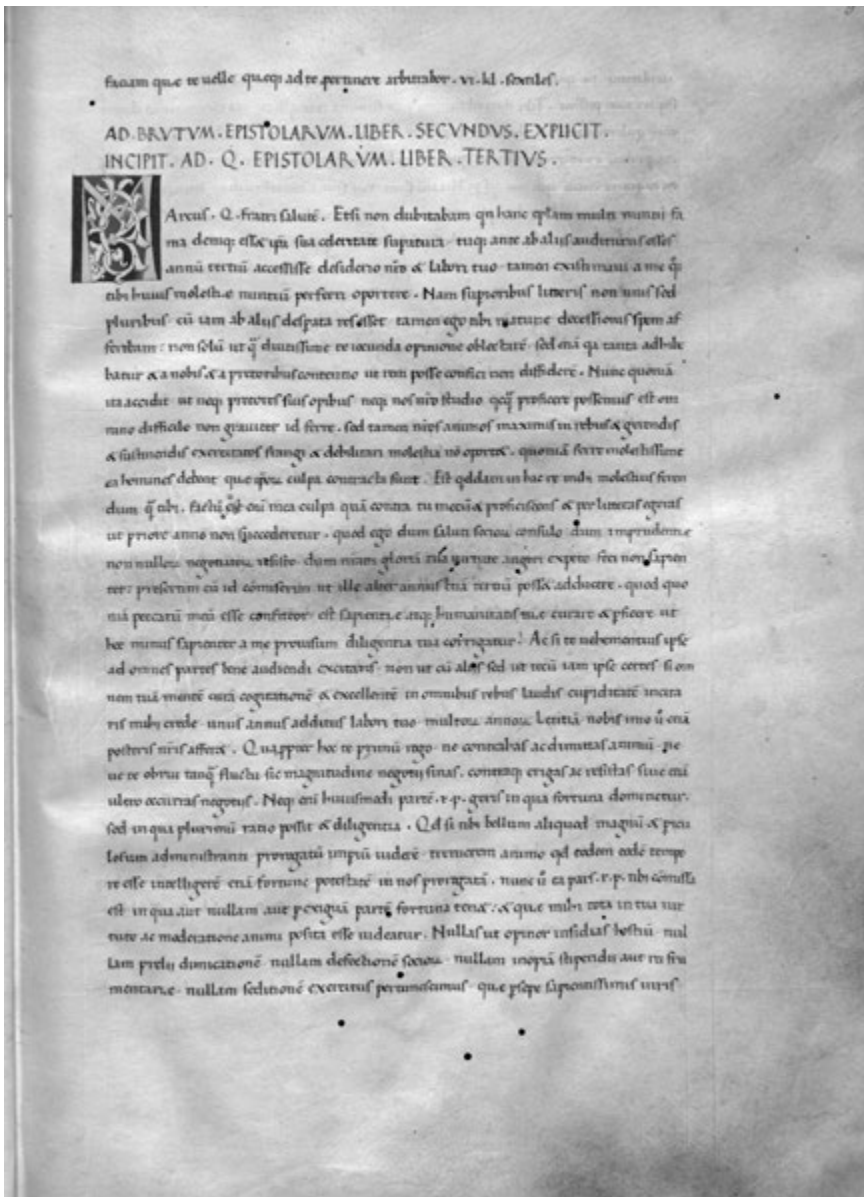 faciam que te uelle queqꝫ ad te pertinere arbitrabor . vi . kl . sextiles .
AD . BRVTVM . EPISTOLARVM . LIBER . SECVNDVS . EXPLICIT .
INCIPIT . AD . Q . EPISTOLARVM . LIBER . TERTIVS .
Arcus . Q . fratri salutē . Etsi non dubitabam qn hanc eplam multi nuntii fa
ma deniqꝫ esset sua celeritate supatura . tuqꝫ ante ab aliis auditurus esses
annū tertiū accessisse desiderio nr̄o & labori tuo . tamen existimaui a me qꝫ
tibi huius molestie nuntiū perferri oportere . Nam supioribus litteris non unis sed
pluribus . cū iam ab aliis despata res esset . tamen ego tibi mature decessionis spem af
ferebam : non solū ut q̄ diutissime te iocunda opinione oblectarē . sed etiā qa tanta adhibe
batur & a nobis & a pretoribus contentio ut rem posse confici non diffiderē . Nunc quoniā
ita accidit ut neqꝫ pretores suis opibus neqꝫ nos nr̄o studio proficere possemus est om
nino difficile non grauiter id ferre . sed tamen nr̄os animos maximis in rebus & gerendis
& sustinendis exercitatos frangi & debilitari molestia nō oportet . quoniā ferre molestissime
ea homines debent que culpa contracta sunt . Est qddam in hac re mihi molestius feren
dum q̄ tibi . factū est eni mea culpa quā contra tu mecū & proficiscens & per litteras egeras
ut priore anno non succederetur . quod ego dum saluti socioꝝ consulo dum imprudentie
non nulloꝝ negotiatoꝝ resisto dum nr̄am gloriā tua uirtute augeri expeto feci non sapien
ter : presertim cū id cōmiserim ut ille alter annus etiā tertiū posset adducere . quod quo
niā peccatū meū esse confiteor . est sapientie atqꝫ humanitatis tue curare & pficere ut
hec minus sapienter a me prouisum diligentia tua corrigatur . Ac si te uehementius ipse
ad omnes partes bene audiendi excitaris . non ut cū aliis sed ut tecū iam ipse certes . si om
nem tuā mentē curā cogitationē & excellentē in omnibus rebus laudis cupiditatē incita
ris mihi crede . unus annus additus labori tuo . multoꝝ annoꝝ letitiā nobis imo ū etiā
posteris nr̄is afferet . Quappter hec te primū rogo . ne contrahas ac dimittas animū . ne
ue te obrui tanq̄ fluctu sic magnitudine negotii sinas . contraqꝫ erigas ac resistas siue etiā
ultro occurras negotiis . Neqꝫ eni huiusmodi partē . r . p . geris in qua fortuna dominetur .
sed in qua plurimū ratio possit & diligentia . Qd si tibi bellum aliquod magnū & picu
losum administranti prorogatū impiū uiderē . tremerem animo qd eodem eodē tempo
re esse intelligerē etiā fortune potestatē in nos prorogatā . nunc ū ea pars . r . p . tibi cōmissa
est in qua aut nullam aut pexiguā partē fortuna tenet . & que mihi tota in tua uir
tute ac moderatione animi posita esse uideatur . Nullas ut opinor insidias hostiū . nul
lam prelii dimicationē . nullam defectionē socioꝝ . nullam inopiā stipendii aut rei fru
mentarie . nullam seditionē exercitus pertimescimus . que psepe sapientissimis uiris